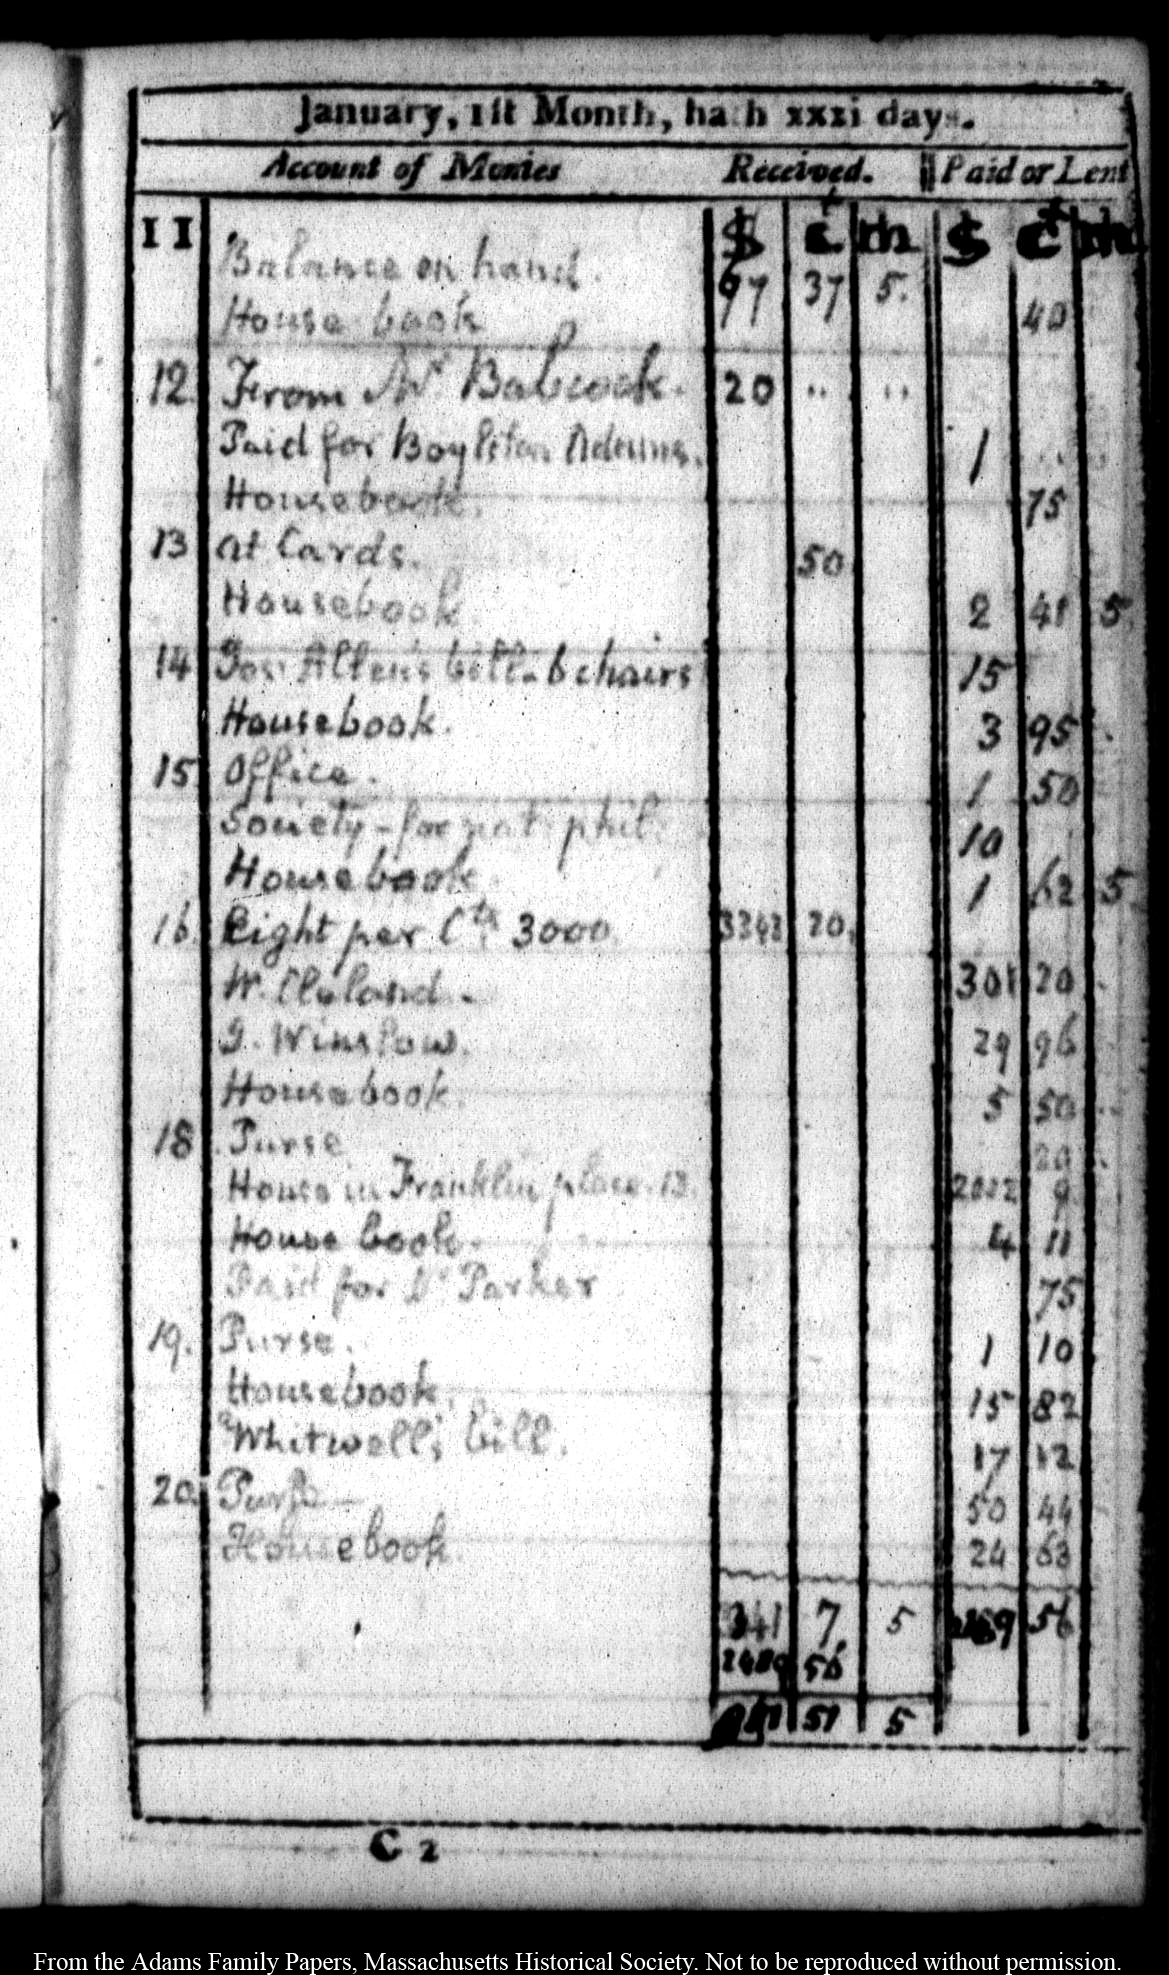 January, 1st Month, hath xxxi days.
Account of Monies Received. Paid or Lent
11 $ ct m $ ct m
Balance on hand. 77 37 5.
House book 40
12. From Mr. Babcock. 20 .. ..
Paid for Boylston Adams. 1 .. ..
Housebook. 75
13 At Cards. 50
Housebook. 2 41 5.
14 Jos: Allen's bill. 6 chairs 15
Housebook. 3 95
15. Office. 1 50
Society - for nat: phil: 10
Housebook. 1 62 5.
16. Eight per Cts. 3000. 3343 20.
W. Clyland. 301 20
J. Winslow. 29 96
Housebook. 5 50
18. Purse 20
House in Franklin place. 13. 2002 9
House book. 4 11
Paid for Dr. Parker 75
19. Purse. 1 10
Housebook. 15 82
Whitwell's bill. 17 12
20. Purse 50 44
Housebook. 24 63
7. 5 56
2489 56
51 5
C 2
From the Adams Family Papers, Massachusetts Historical Society. Not to be reproduced without permission.